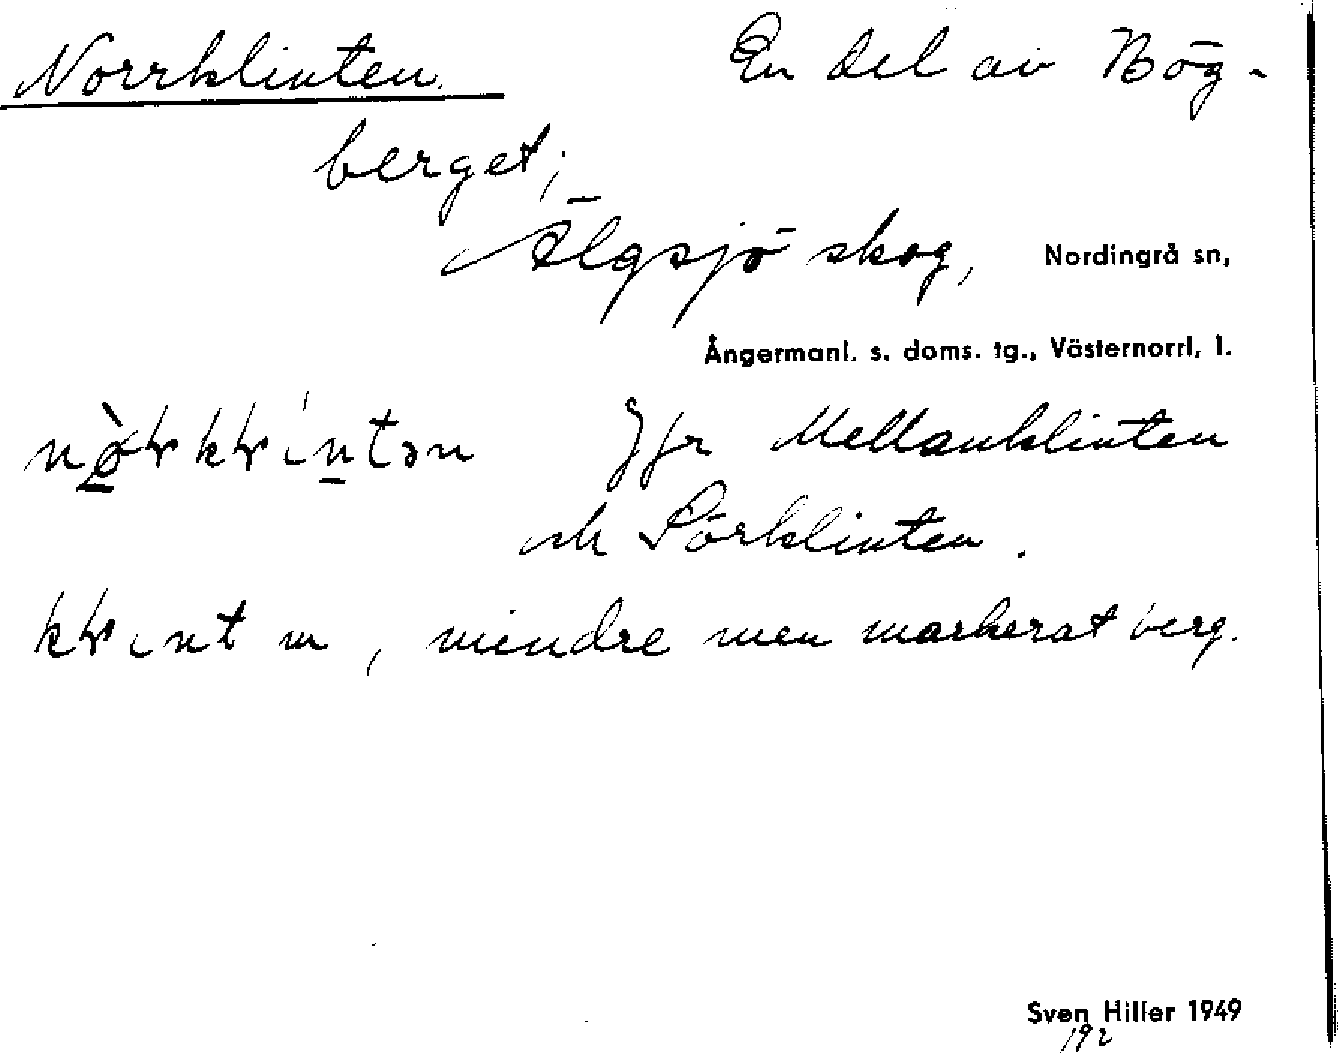 Norrklinten. En del av Bög-
berget;
Älgsjö skog, Nordingrå sn,
Ångermanl. s. doms. tg., Västernorrl. l.
Jfr Mellanklinten
och Sörklinten.
m, mindre men markerat berg.
Sven Hiller 1949
192